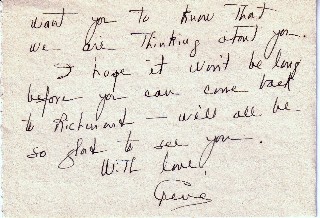 want you to know that
we are thinking about you.
I hope it won't be long
before you can come back
to Richmond — we'll all be
so glad to see you —.
With love,